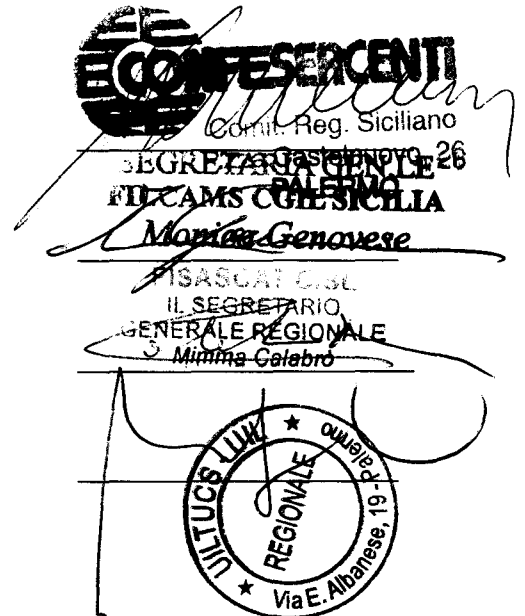 CONFESERCENTI
Comit. Reg. Siciliano
Castelnuovo, 26
PALERMO
SEGRETARIA GEN.LE
FILCAMS CGIL SICILIA
Monica Genovese
FISASCAT CISL
IL SEGRETARIO
GENERALE REGIONALE
Mimma Calabrò
UILTUCS UIL
REGIONALE
Via E. Albanese, 19 - Palermo